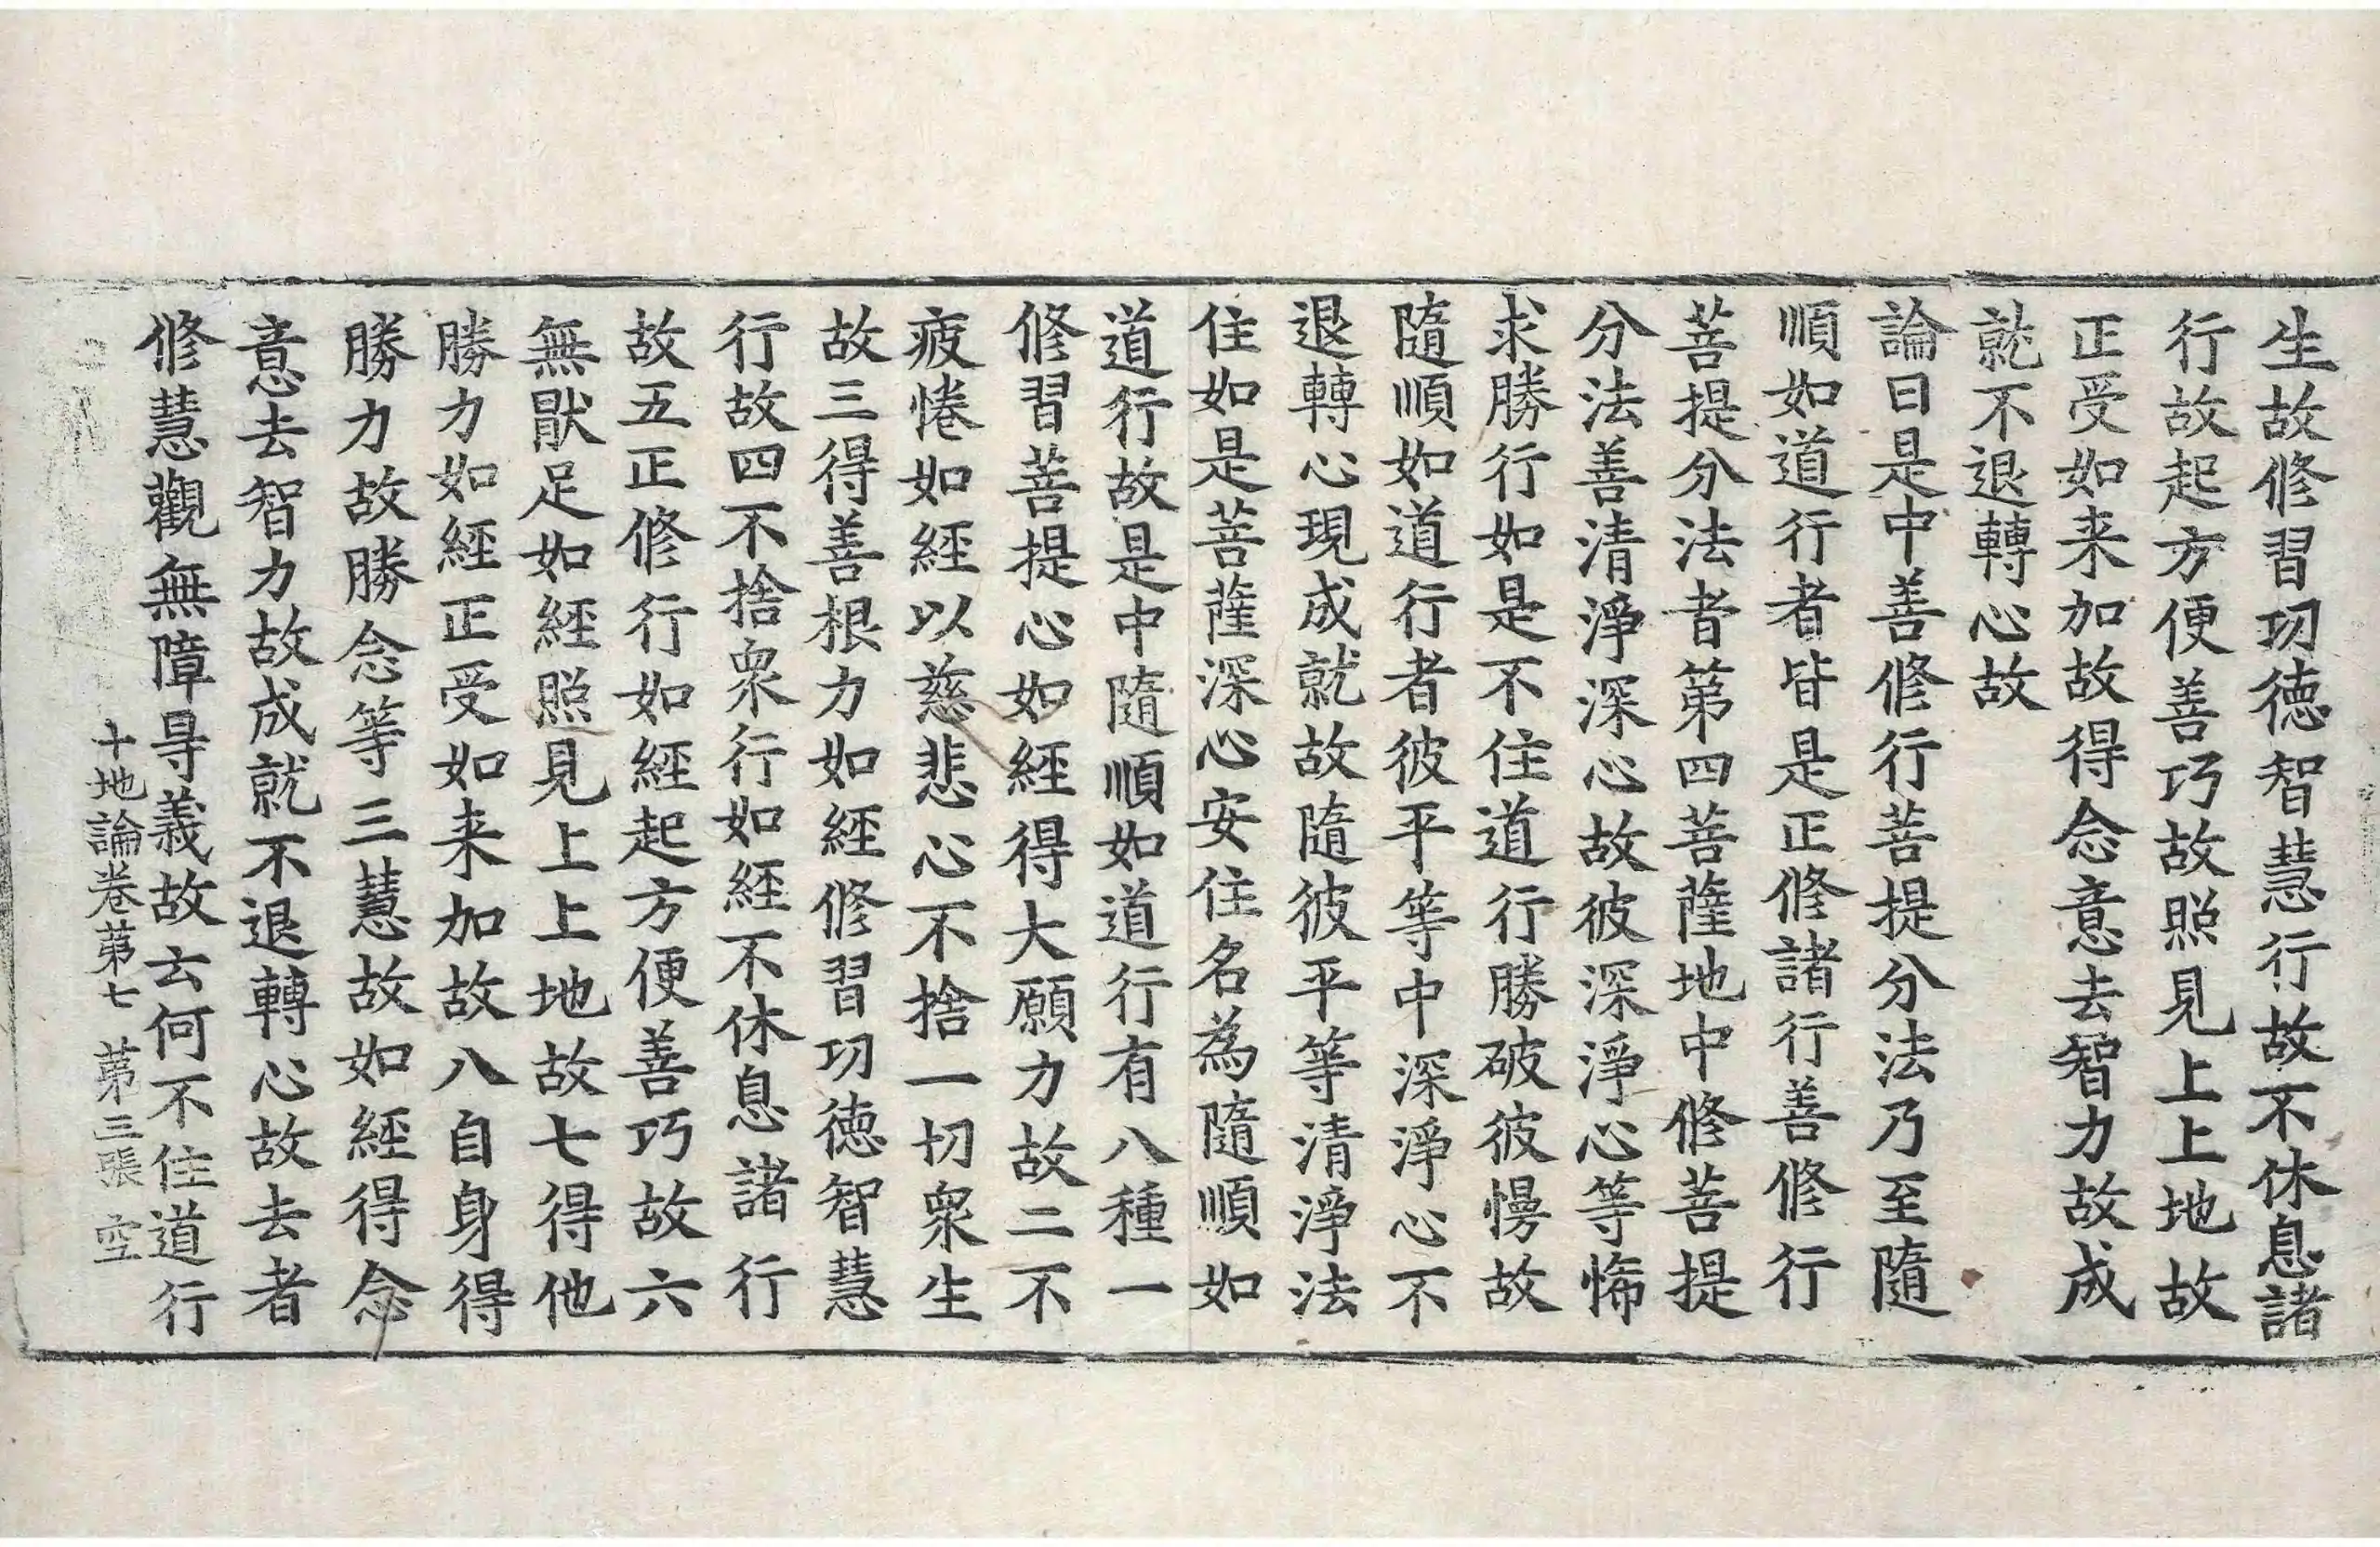 生故修習功徳智慧行故不休息諸
行故起方便善巧故照見上上地故
正受如来加故得念意去智力故成
就不退轉心故
論曰是中善修行菩提分法乃至隨
順如道行者皆是正修諸行善修行
菩提分法者第四菩薩地中修菩提
分法善清淨深心故彼深淨心等悕
求勝行如是不住道行勝破彼慢故
隨順如道行者彼平等中深淨心不
退轉心現成就故隨彼平等清淨法
住如是菩薩深心安住名為隨順如
道行故是中隨順如道行有八種一
修習菩提心如經得大願力故二不
疲惓如經以慈悲心不捨一切衆生
故三得善根力如經修習功徳智慧
行故四不捨衆行如經不休息諸行
故五正修行如經起方便善巧故六
無猒足如經照見上上地故七得他
勝力如經正受如来加故八自身得
勝力故勝念等三慧故如經得念
意去智力故成就不退轉心故去者
修慧觀無障㝵義故云何不住道行
十地論卷第七 第三張 空